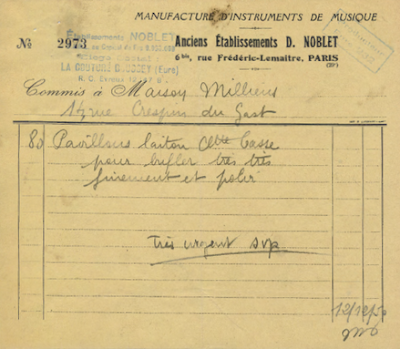 MANUFACTURE D'INSTRUMENTS DE MUSIQUE
№ 2973
Établissements NOBLET
LA COUTURE BOUSSEY (Eure)
Anciens Établissements D. NOBLET
6bis, rue Frédéric-Lemaitre, PARIS
Commis à Maison Milliens
17 rue Crespin du Gast
80 Pavillons laiton Cltte basse
pour briller très très
finement et polir
très urgent svp
12/12/50